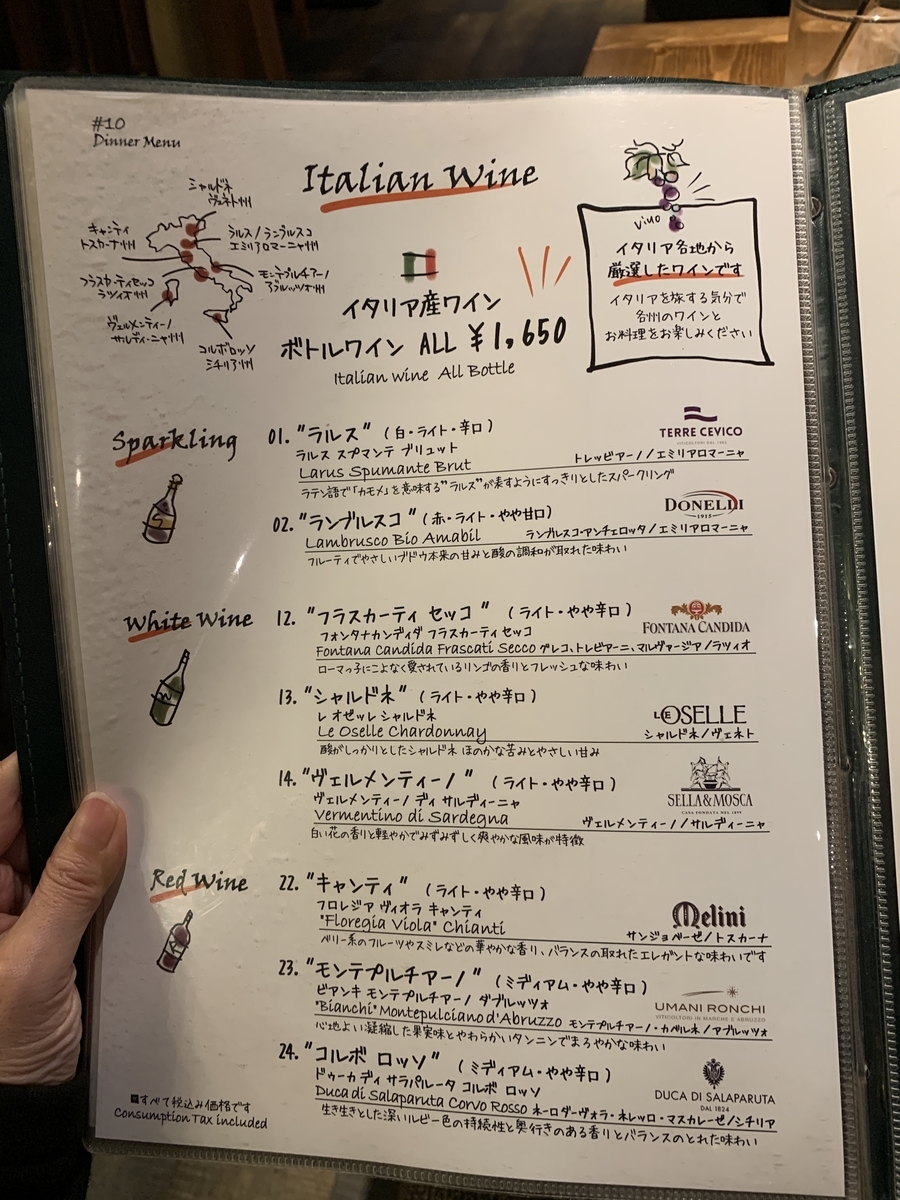 #10
Dinner Menu
Italian Wine
シャルドネ
ヴェネト州
キャンティ
トスカーナ州
ラルス/ランブルスコ
エミリアロマーニャ州
フラスカーティセッコ
ラツィオ州
モンテプルチアーノ
アブルッツォ州
ヴェルメンティーノ
サルディーニャ州
コルボロッソ
シチリア州
イタリア産ワイン
ボトルワイン ALL ¥1,650
Italian wine All Bottle
vino
イタリア各地から
厳選したワインです
イタリアを旅する気分で
各州のワインと
お料理をお楽しみください
Sparkling
01. "ラルス" (白・ライト・辛口)
ラルス スプマンテ ブリュット
Larus Spumante Brut
TERRE CEVICO
トレッビアーノ/エミリアロマーニャ
ラテン語で「カモメ」を意味する"ラルス"が表すようにすっきりとしたスパークリング
02. "ランブルスコ" (赤・ライト・やや甘口)
Lambrusco Bio Amabil
DONELLI
1915
ランブルスコ・アンチェロッタ/エミリアロマーニャ
フルーティでやさしいブドウ本来の甘みと酸の調和が取れた味わい
White Wine
12. "フラスカーティ セッコ" (ライト・やや辛口)
フォンタナカンディダ フラスカーティ セッコ
Fontana Candida Frascati Secco
FONTANA CANDIDA
グレコ、トレビアーニ、マルヴァージア/ラツィオ
ローマっ子にこよなく愛されているリンゴの香りとフレッシュな味わい
13. "シャルドネ" (ライト・やや辛口)
レ オゼッレ シャルドネ
Le Oselle Chardonnay
LE OSELLE
シャルドネ/ヴェネト
酸がしっかりとしたシャルドネ ほのかな苦みとやさしい甘み
14. "ヴェルメンティーノ" (ライト・やや辛口)
ヴェルメンティーノ ディ サルディーニャ
Vermentino di Sardegna
SELLA&MOSCA
ヴェルメンティーノ/サルディーニャ
白い花の香りと軽やかでみずみずしく爽やかな風味が特徴
Red Wine
22. "キャンティ" (ライト・やや辛口)
フロレジア ヴィオラ キャンティ
"Floregia Viola" Chianti
Melini
サンジョベーゼ/トスカーナ
ベリー系のフルーツやスミレなどの華やかな香り、バランスの取れたエレガントな味わいです
23. "モンテプルチアーノ" (ミディアム・やや辛口)
ビアンキ モンテプルチアーノ ダブルッツォ
"Bianchi" Montepulciano d'Abruzzo
UMANI RONCHI
VITICOLTORI IN MARCHE E ABRUZZO
モンテプルチアーノ・カベルネ/アブルッツォ
心地よい凝縮した果実味とやわらかいタンニンでまろやかな味わい
24. "コルボ ロッソ" (ミディアム・やや辛口)
ドゥーカ ディ サラパルータ コルボ ロッソ
Duca di Salaparuta Corvo Rosso
DUCA DI SALAPARUTA
DAL 1824
ネーロダーヴォラ・ネレッロ・マスカレーゼ/シチリア
生き生きとした深いルビー色の持続性と奥行きのある香りとバランスのとれた味わい
すべて税込み価格です
Consumption Tax included